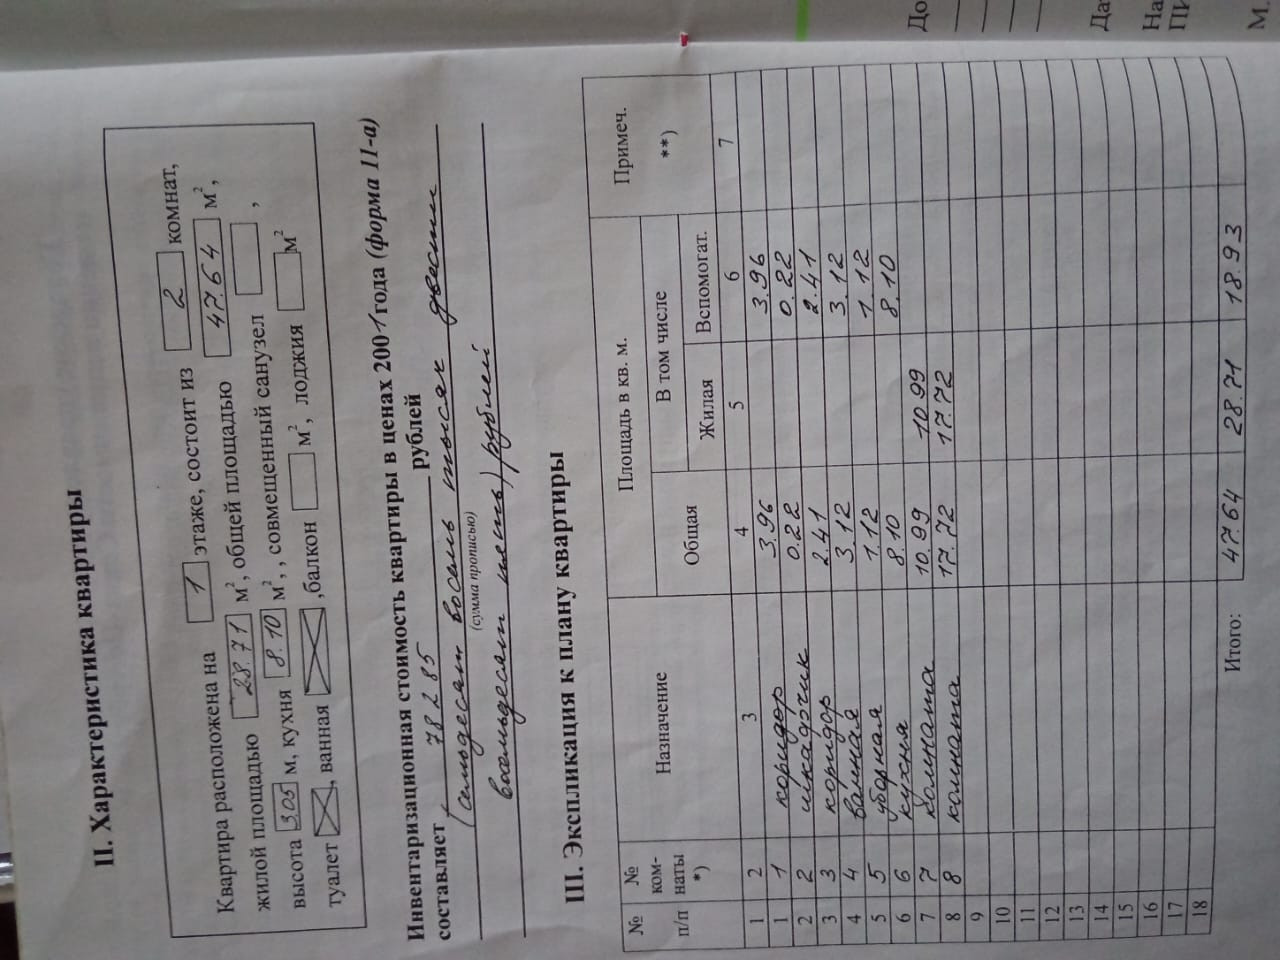 II. Характеристика квартиры
Квартира расположена на 1 этаже, состоит из 2 комнат,
жилой площадью 28.71 м², общей площадью 47.64 м²,
высота 3.05 м, кухня 8.10 м², , совмещенный санузел ,
туалет , ванная ,балкон м², лоджия м²
Инвентаризационная стоимость квартиры в ценах 2001 года (форма 11-а)
составляет 78285 рублей
(семьдесят восемь тысяч двести
(сумма прописью)
восемьдесят пять) рублей
III. Экспликация к плану квартиры
№ п/п № ком- наты *) Назначение Площадь в кв. м. Примеч. **)
Общая В том числе
Жилая Вспомогат.
1 2 3 4 5 6 7
1 1 коридор 3.96 3.96
2 2 шкафчик 0.22 0.22
3 3 коридор 2.41 2.41
4 4 ванная 3.12 3.12
5 5 уборная 1.12 1.12
6 6 кухня 8.10 8.10
7 7 комната 10.99 10.99
8 8 комната 17.72 17.72
9
10
11
12
13
14
15
16
17
18
Итого: 47.64 28.71 18.93
До
Да
На
ПИ
М.